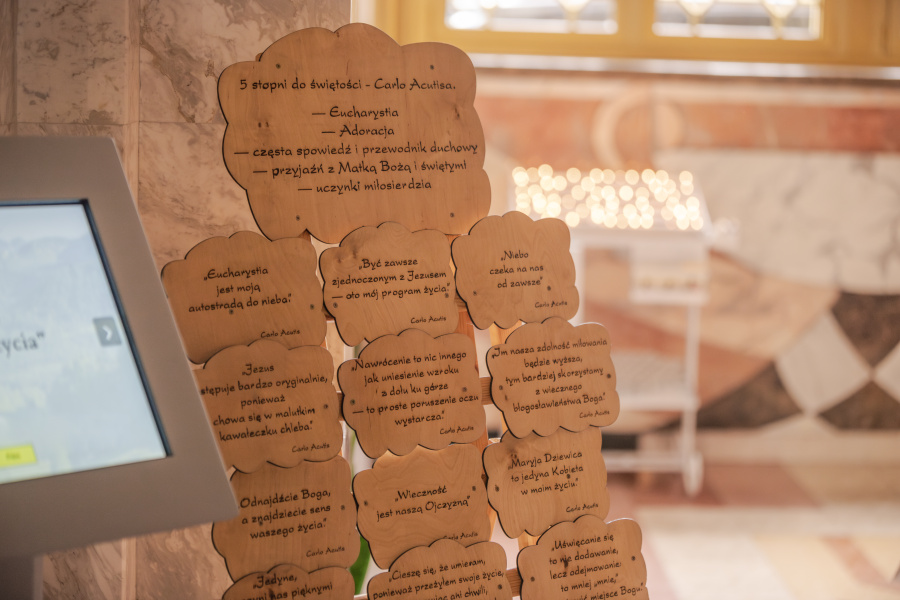 5 stopni do świętości - Carlo Acutisa.
— Eucharystia
— Adoracja
— częsta spowiedź i przewodnik duchowy
— przyjaźń z Matką Bożą i świętymi
— uczynki miłosierdzia
„Eucharystia
jest moją
autostradą do nieba.”
Carlo Acutis
„Być zawsze
zjednoczonym z Jezusem
— oto mój program życia.”
Carlo Acutis
„Niebo
czeka na nas
od zawsze”
Carlo Acutis
Jezus
stępuje bardzo oryginalnie,
ponieważ
chowa się w malutkim
kawałeczku chleba.”
Carlo Acutis
„Nawrócenie to nic innego
jak uniesienie wzroku
z dołu ku górze
— to proste poruszenie oczu
wystarcza.”
Carlo Acutis
„Im nasza zdolność miłowania
będzie wyższa,
tym bardziej skorzystamy
z wiecznego
błogosławieństwa Boga.”
Carlo Acutis
Odnajdźcie Boga,
a znajdziecie sens
waszego życia.”
Carlo Acutis
„Wieczność
jest naszą Ojczyzną”
Carlo Acutis
„Maryja Dziewica
to jedyna Kobieta
w moim życiu.”
Carlo Acutis
„Jedyne,
nas pięknymi
„Cieszę się, że umieram,
ponieważ przeżyłem swoje życie,
ani chwili,
„Uświęcanie się
to nie dodawanie,
lecz odejmowanie:
to mniej „mnie,”
miejsce Bogu.
ycia”